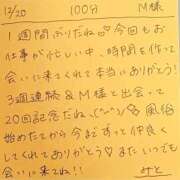 12/20 100分 M様
1週間ぶりだね♡今回もお
仕事が忙しい中、時間を作って
会いに来てくれて本当にありがとう!
3週連続&M様と出会って
20回記念だね、(^ω^)風俗
始めたてから今まですっと仲良く
してくれてありがとう♡またいつでも
会いに来てね!!
みと